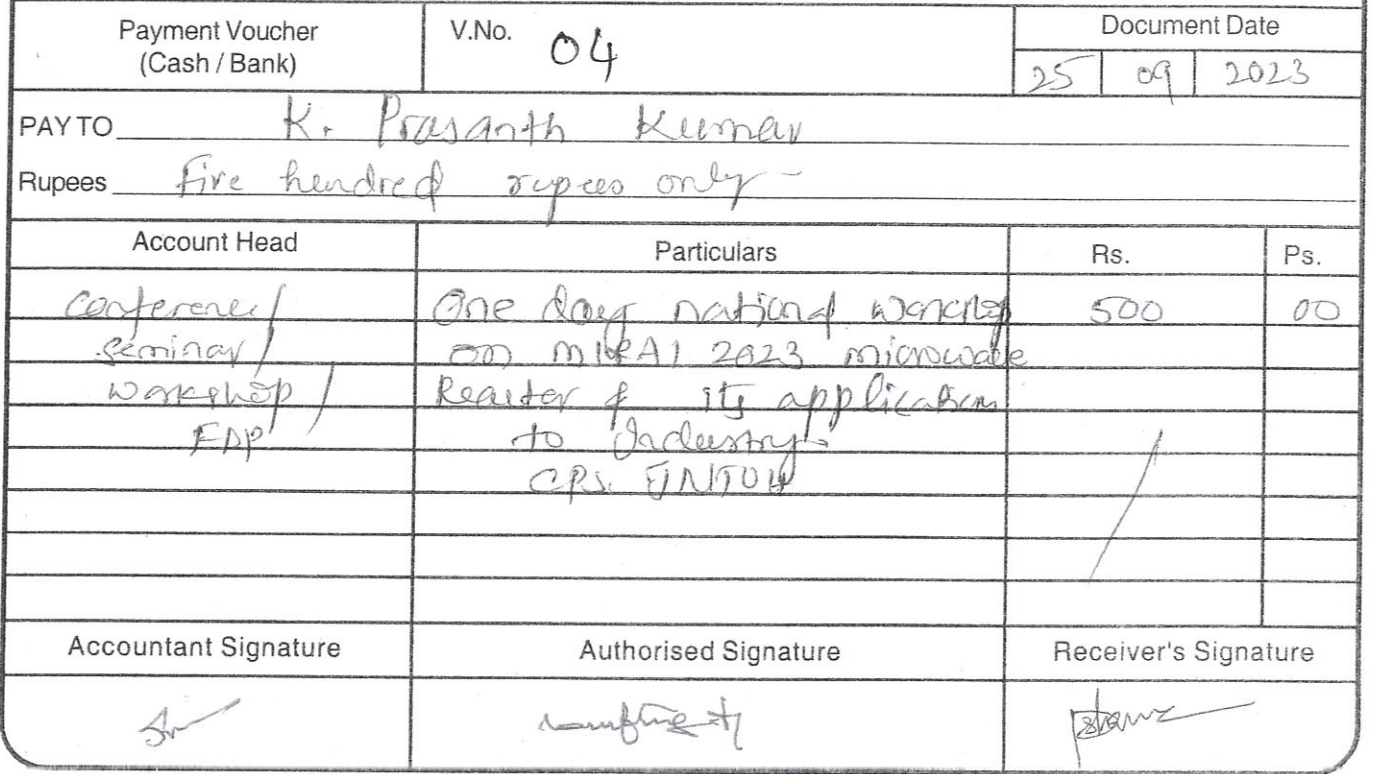 Payment Voucher
(Cash / Bank)
V.No. 04
Document Date
25 09 2023
PAY TO K. Prasanth Kumar
Rupees Five hundred rupees only
Account Head Particulars Rs. Ps.
Conference/ One day national workshop 500 00
Seminar/ on 2023 microwave
Workshop/ Reactor & its application
FDP to Industry
JNTUH
Accountant Signature Authorised Signature Receiver's Signature